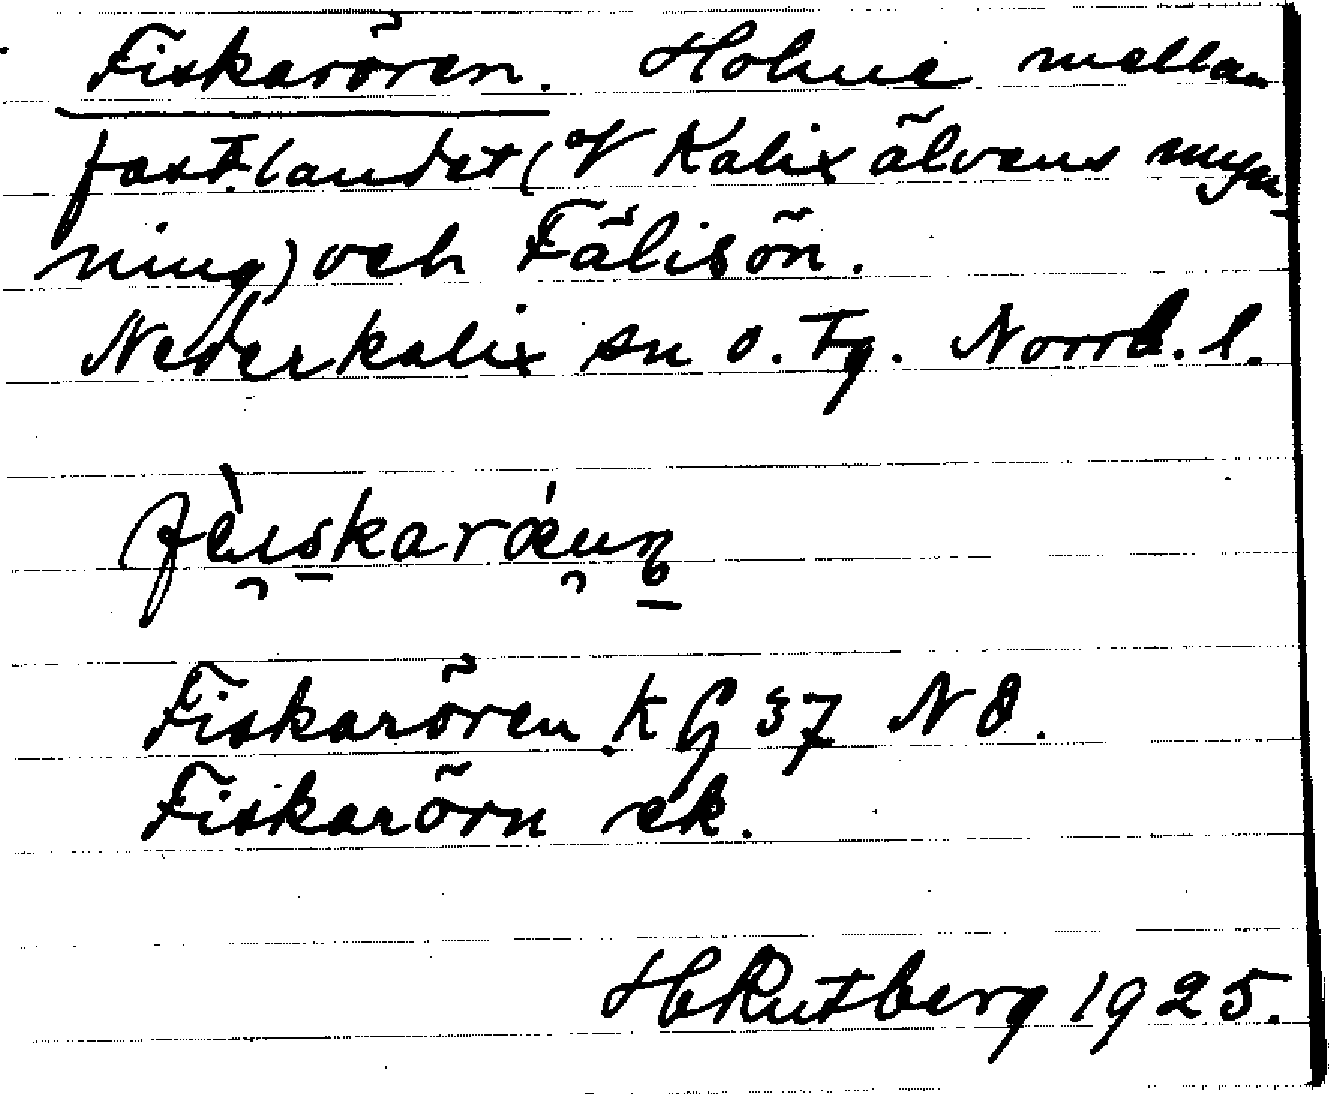 Fiskarören. Holme mellan
fastlandet (V Kalixälvens myn-
ning) och Fälisön.
Nederkalix sn o. tg. Norrb. l.
Fiskarören KG 37 NO.
Fiskarörn ek.
H Rutberg 1925.